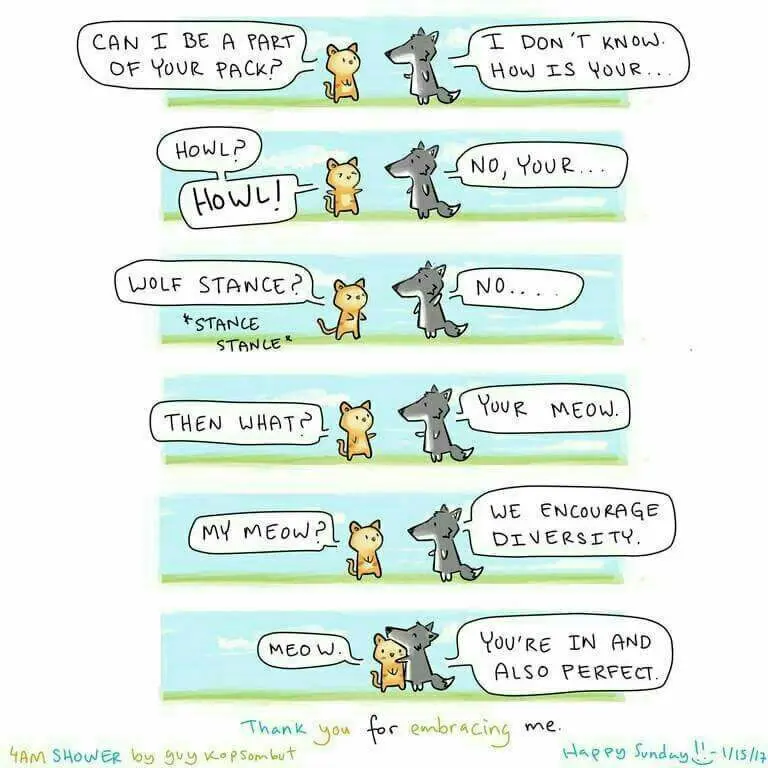 CAN I BE A PART
OF YOUR PACK?
I DON'T KNOW.
HOW IS YOUR...
HOWL?
HOWL!
NO, YOUR...
WOLF STANCE?
*STANCE
STANCE*
NO....
THEN WHAT?
YOUR MEOW.
MY MEOW?
WE ENCOURAGE
DIVERSITY.
MEOW.
YOU'RE IN AND
ALSO PERFECT.
Thank you for embracing me.
4AM SHOWER by guy kopsombut
Happy Sunday!! - 1/15/17